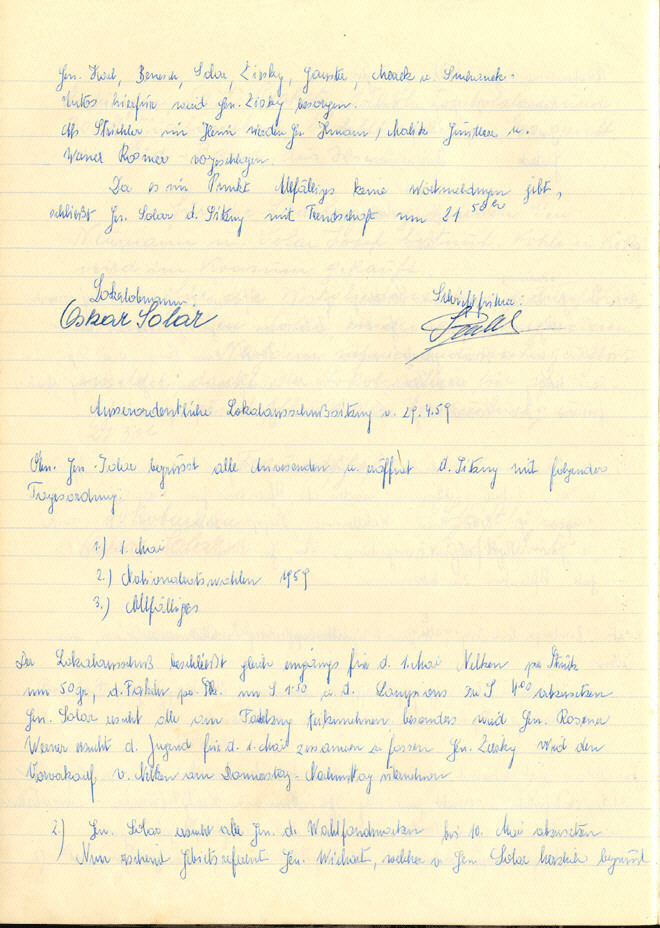 Gen. Karl, Benesch, Solar, Zisky, Gawske, Macek u. Smekanek.
Autos hierfür wird Gen. Zisky besorgen.
Als Strichler im Heim werden Gen. Hmann, Malik Günther u.
Werner Rosner vorgeschlagen.
Da es im Punkt Allfälliges keine Wortmeldungen gibt,
schließt Gen. Solar d. Sitzung mit Freundschaft um 21 50 Uhr
Lokalobmann: Schriftführer:
Oskar Solar
Ausserordentliche Lokalausschußsitzung v. 29.4.59
Obm. Gen. Solar begrüsst alle Anwesenden u. eröffnet d. Sitzung mit folgender
Tagesordnung:
1.) 1. Mai
2.) Nationalratswahlen 1959
3.) Allfälliges
Der Lokalausschuß beschließt gleich eingangs für d. 1. Mai Nelken per Stück
um 50 gr, d. Fackeln per Stk. um S 1.50 u. d. Lampions zu S 4.00 abzusetzen
Gen. Solar ersucht alle am Fackelzug teilzunehmen besonders wird Gen. Rosner
Werner ersucht d. Jugend für d. 1. Mai zusammen zu fassen Gen. Zisky wird den
Vorverkauf v. Nelken am Donnerstag-Nachmittag übernehmen
2.) Gen. Solar ersucht alle Gen. d. Wahlfondmarken bis 10. Mai abzusetzen
Nun erscheint Gebietsreferent Gen. Wichart, welcher v. Gen. Solar herzlich begrüsst